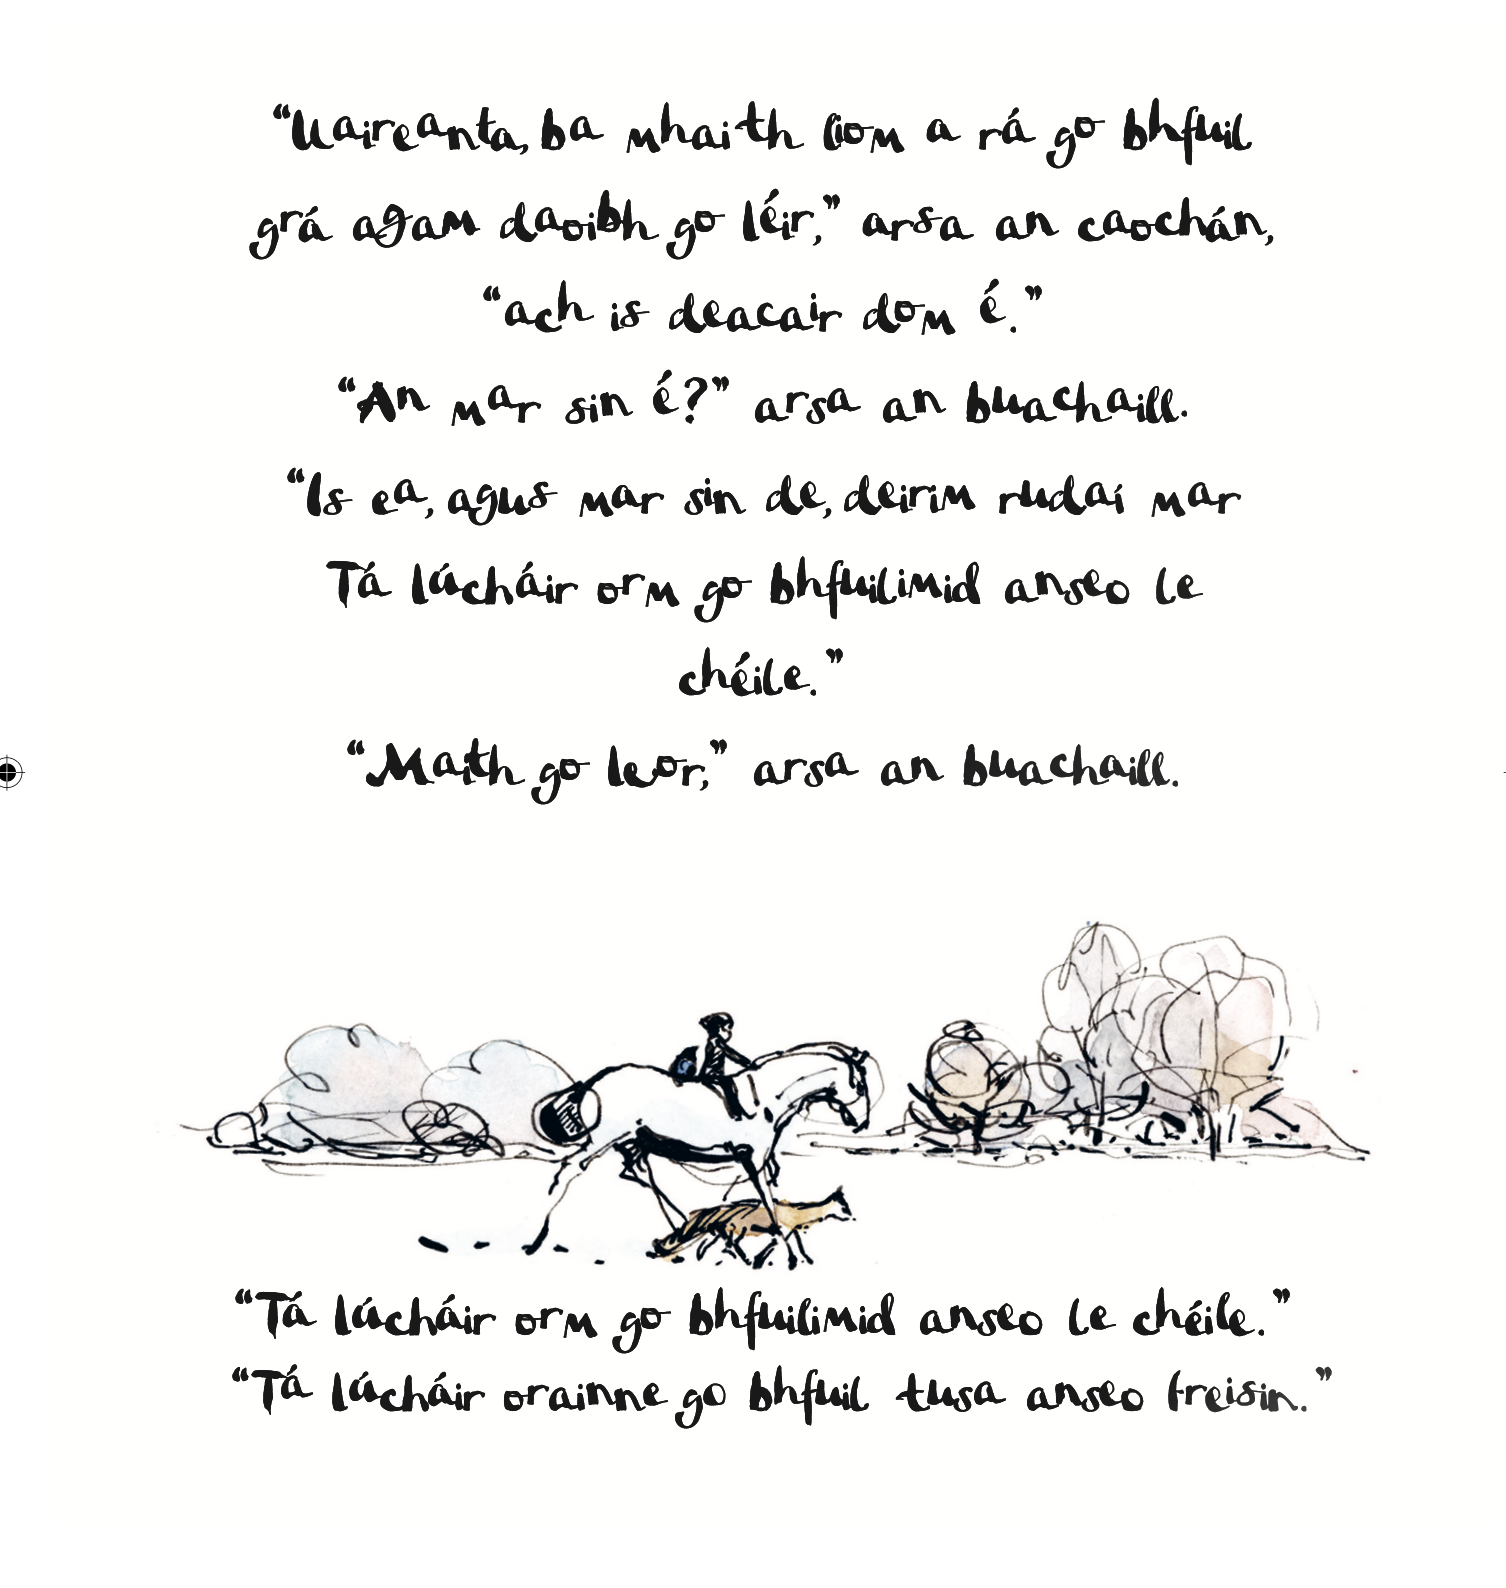 “Uaireanta, ba mhaith liom a rá go bhfuil
grá agam daoibh go léir,” arsa an caochán,
“ach is deacair dom é.”
“An mar sin é?” arsa an buachaill.
“Is ea, agus mar sin de, deirim rudaí mar
Tá lúcháir orm go bhfuilimid anseo le
chéile.”
“Maith go leor,” arsa an buachaill.
“Tá lúcháir orm go bhfuilimid anseo le chéile.”
“Tá lúcháir orainne go bhfuil tusa anseo freisin.”